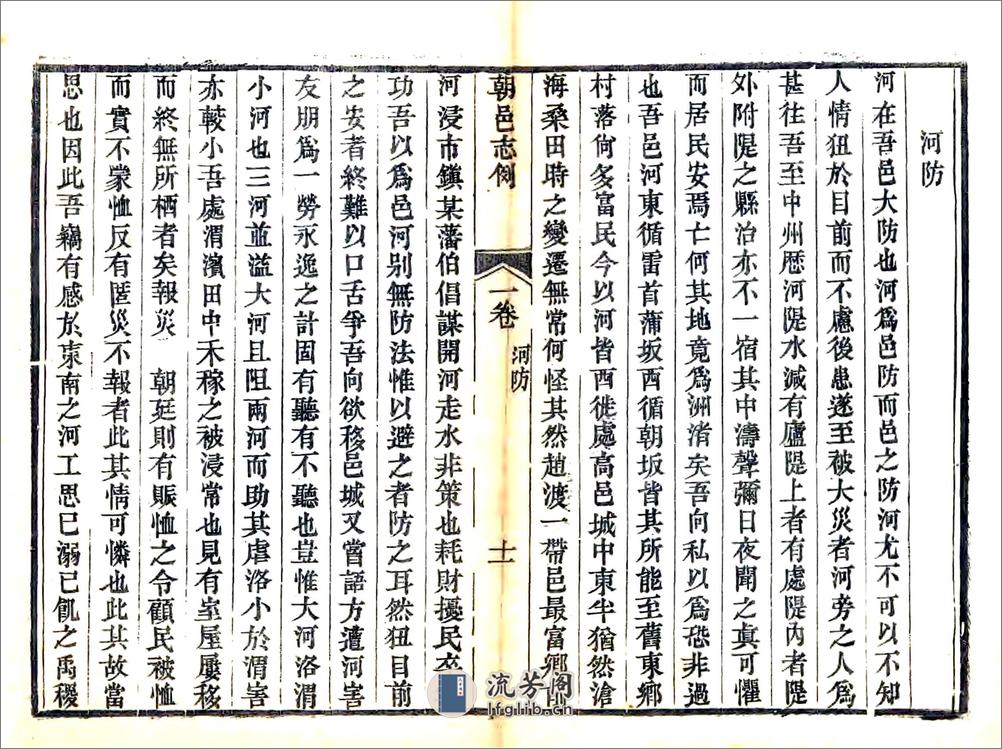 河防
河在吾邑大防也河爲邑防而邑之防河尤不可以不知
人情狃於目前而不慮後患遂至被大災者河旁之人爲
甚往吾至中州歴河隄水減有廬隄上者有處隄內者隄
外附隄之縣治亦不一宿其中濤聲彌日夜聞之眞可懼
而居民安焉亡何其地竟爲洲渚矣吾向私以爲恐非過
也吾邑河東循雷首蒲坂西循朝坂皆其所能至舊東鄉
村落尙多富民今以河皆西徙處高邑城中東半猶然滄
海桑田時之變遷無常何怪其然趙渡一帶邑最富鄉
朝邑志例
一卷
河防
十一
河浸市鎭某藩伯倡謀開河走水非策也耗財擾民卒
功吾以爲邑河别無防法惟以避之者防之耳然狃目前
之安者終難以口舌爭吾向欲移邑城又嘗語方遭河害
友朋爲一勞永逸之計固有聽有不聽也豈惟大河洛渭
小河也三河並溢大河且阻兩河而助其虐洛小於渭害
亦較小吾處渭濱田中禾稼之被浸常也見有室屋屢移
而終無所栖者矣報災　朝廷則有賑恤之令顧民被恤
而實不蒙恤反有匿災不報者此其情可憐也此其故當
思也因此吾竊有感於東南之河工思已溺已飢之禹稷
流芳阁
lfglib.cn